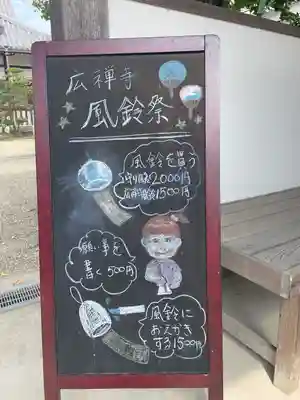 広禅寺
風鈴祭
風鈴を買う
2000円
1500円
願い事を
書く500円
風鈴に
おえがき
する1500円